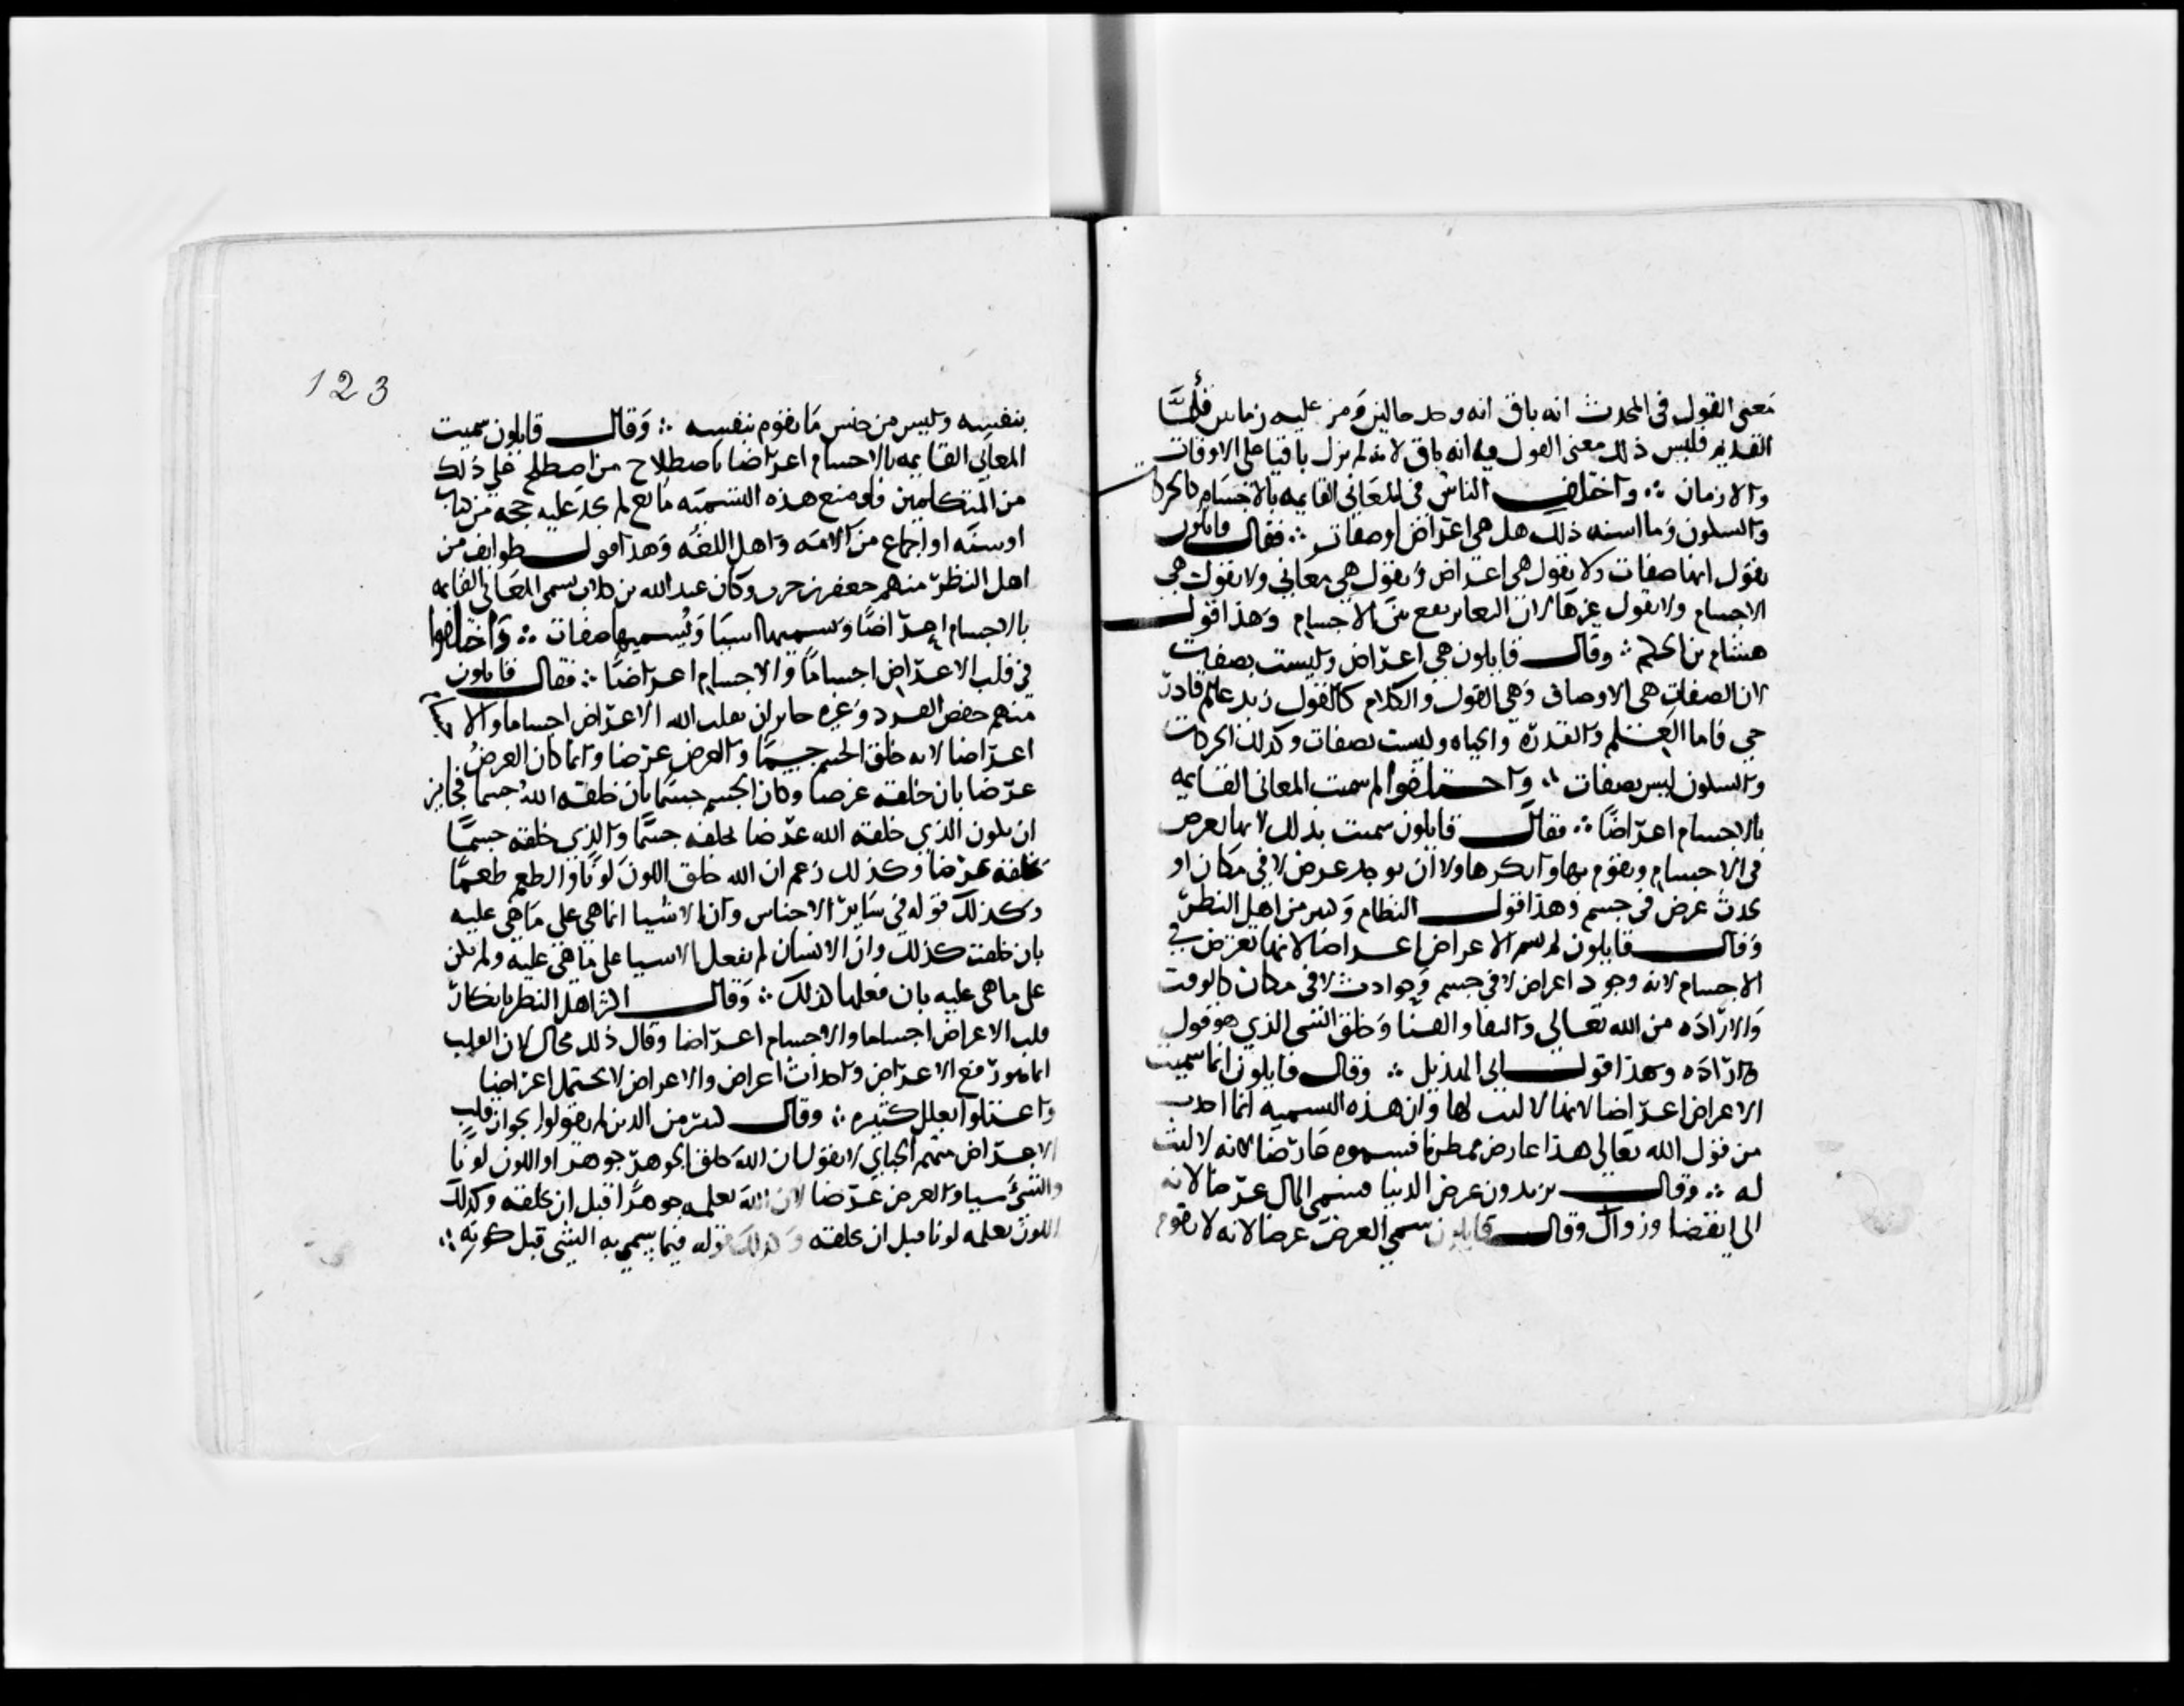 معنى القول فى المحدث انه باق انه وجد حالين ومر عليه زمانين فأما
القديم فليس ذلك معنى القول فيه انه باق لانه لم يزل باقيا على الاوقات
والازمان ∴ واختلف الناس فى المعانى القايمه بالاجسام كالحركات
والسكون وما اشبه ذلك هل هى اعراض او صفات ∴ فقال قايلون
نقول انها صفات ولا نقول هى اعراض ونقول هى معانى ولا نقول هى
الاجسام ولا نقول غيرها لان التغاير يقع بين الاجسام وهذا قول
هشام بن الحكم ∴ وقال قايلون هى اعراض وليست بصفات
لان الصفات هى الاوصاف وهى القول والكلام كالقول زيد عالم قادر
حى فاما العلم والقدرة والحياه وليست بصفات وكذلك الحركات
والسكون ليس بصفات ∴ واختلفوا لم سميت المعانى القايمه
بالاجسام اعراضًا ∴ فقال قايلون سميت بذلك لانها تعرض
فى الاجسام وتقوم بها وانكر هاولا ان يوجد عرض لا فى مكان او
يحدث عرض فى جسم وهذا قول النظام وكثير من اهل النظر
وقال قايلون لم تسم الاعراض اعراضا لانها تعترض فى
الاجسام لانه وجود اعراض لا فى جسم وحوادث لا فى مكان كالوقت
والاراده من الله تعالى والبقا والفنا وخلق الشى الذى هو قول
واراده وهذا قول ابى الهذيل ∴ وقال قايلون انما سميت
الاعراض اعراضا لانها لا لبث لها وان هذه التسميه انما اخذت
من قول الله تعالى هذا عارض ممطرنا فسموه عارضا لانه لا لبث
له ∴ وقال يريدون عرض الدنيا فسمى المال عرضا لانه
الى انقضا وزوال وقال قايلون سمى العرض عرضا لانه لا يقوم
123
بنفسه وليس من جنس ما يقوم بنفسه ∴ وقال قايلون سميت
المعانى القايمه بالاجسام اعراضا باصطلاح من اصطلح على ذلك
من المتكلمين فلو منع هذه التسميه مانع لم نجد عليه حجه من كتاب
او سنه او اجماع من الامه واهل اللغه وهذا قول طوايف من
اهل النظر منهم جعفر بن حرب وكان عبد الله بن كلاب يسمى المعانى القايمه
بالاجسام اعراضًا ويسميها اشيا ويسميها صفات ∴ واختلفوا
فى قلب الاعراض اجسامًا والاجسام اعراضًا ∴ فقال قايلون
منهم حفص الفرد وغيره جايز ان يقلب الله الاعراض اجساما والاجسام
اعراضا لانه خلق الجسم جسمًا والعرض عرضا وانما كان العرض
عرضا بان خلقه عرضا وكان الجسم جسمًا بان خلقه الله جسما فجايز
ان يكون الذى خلقه الله عرضا يخلقه جسمًا والذى خلقه جسمًا
يخلقه عرضا وكذلك زعم ان الله خلق اللون لونًا والطعم طعمًا
وكذلك قوله فى ساير الاجناس وان الاشيا انما هى على ما هى عليه
بان خلقت كذلك وان الانسان لم يفعل الاشيا على ما هى عليه ولم تكن
على ما هى عليه بان فعلها كذلك ∴ وقال اكثر اهل النظر بانكار
قلب الاعراض اجساما والاجسام اعراضا وقال ذلك محال لان القلب
انما هو رفع الاعراض واحداث اعراض والاعراض لا تحتمل اعراضا
واعتلوا بعلل كثيره ∴ وقال كثير من الذين لم يقولوا بجواز قلب
الاعراض منهم الجباى لا نقول ان الله خلق الجوهر جوهرا واللون لونًا
والشى شيا والعرض عرضا لان الله يعلمه جوهرًا قبل ان يخلقه وكذلك
اللون يعلمه لونا قبل ان يخلقه وكذلك قوله فيما يسمى به الشى قبل كونه ∴